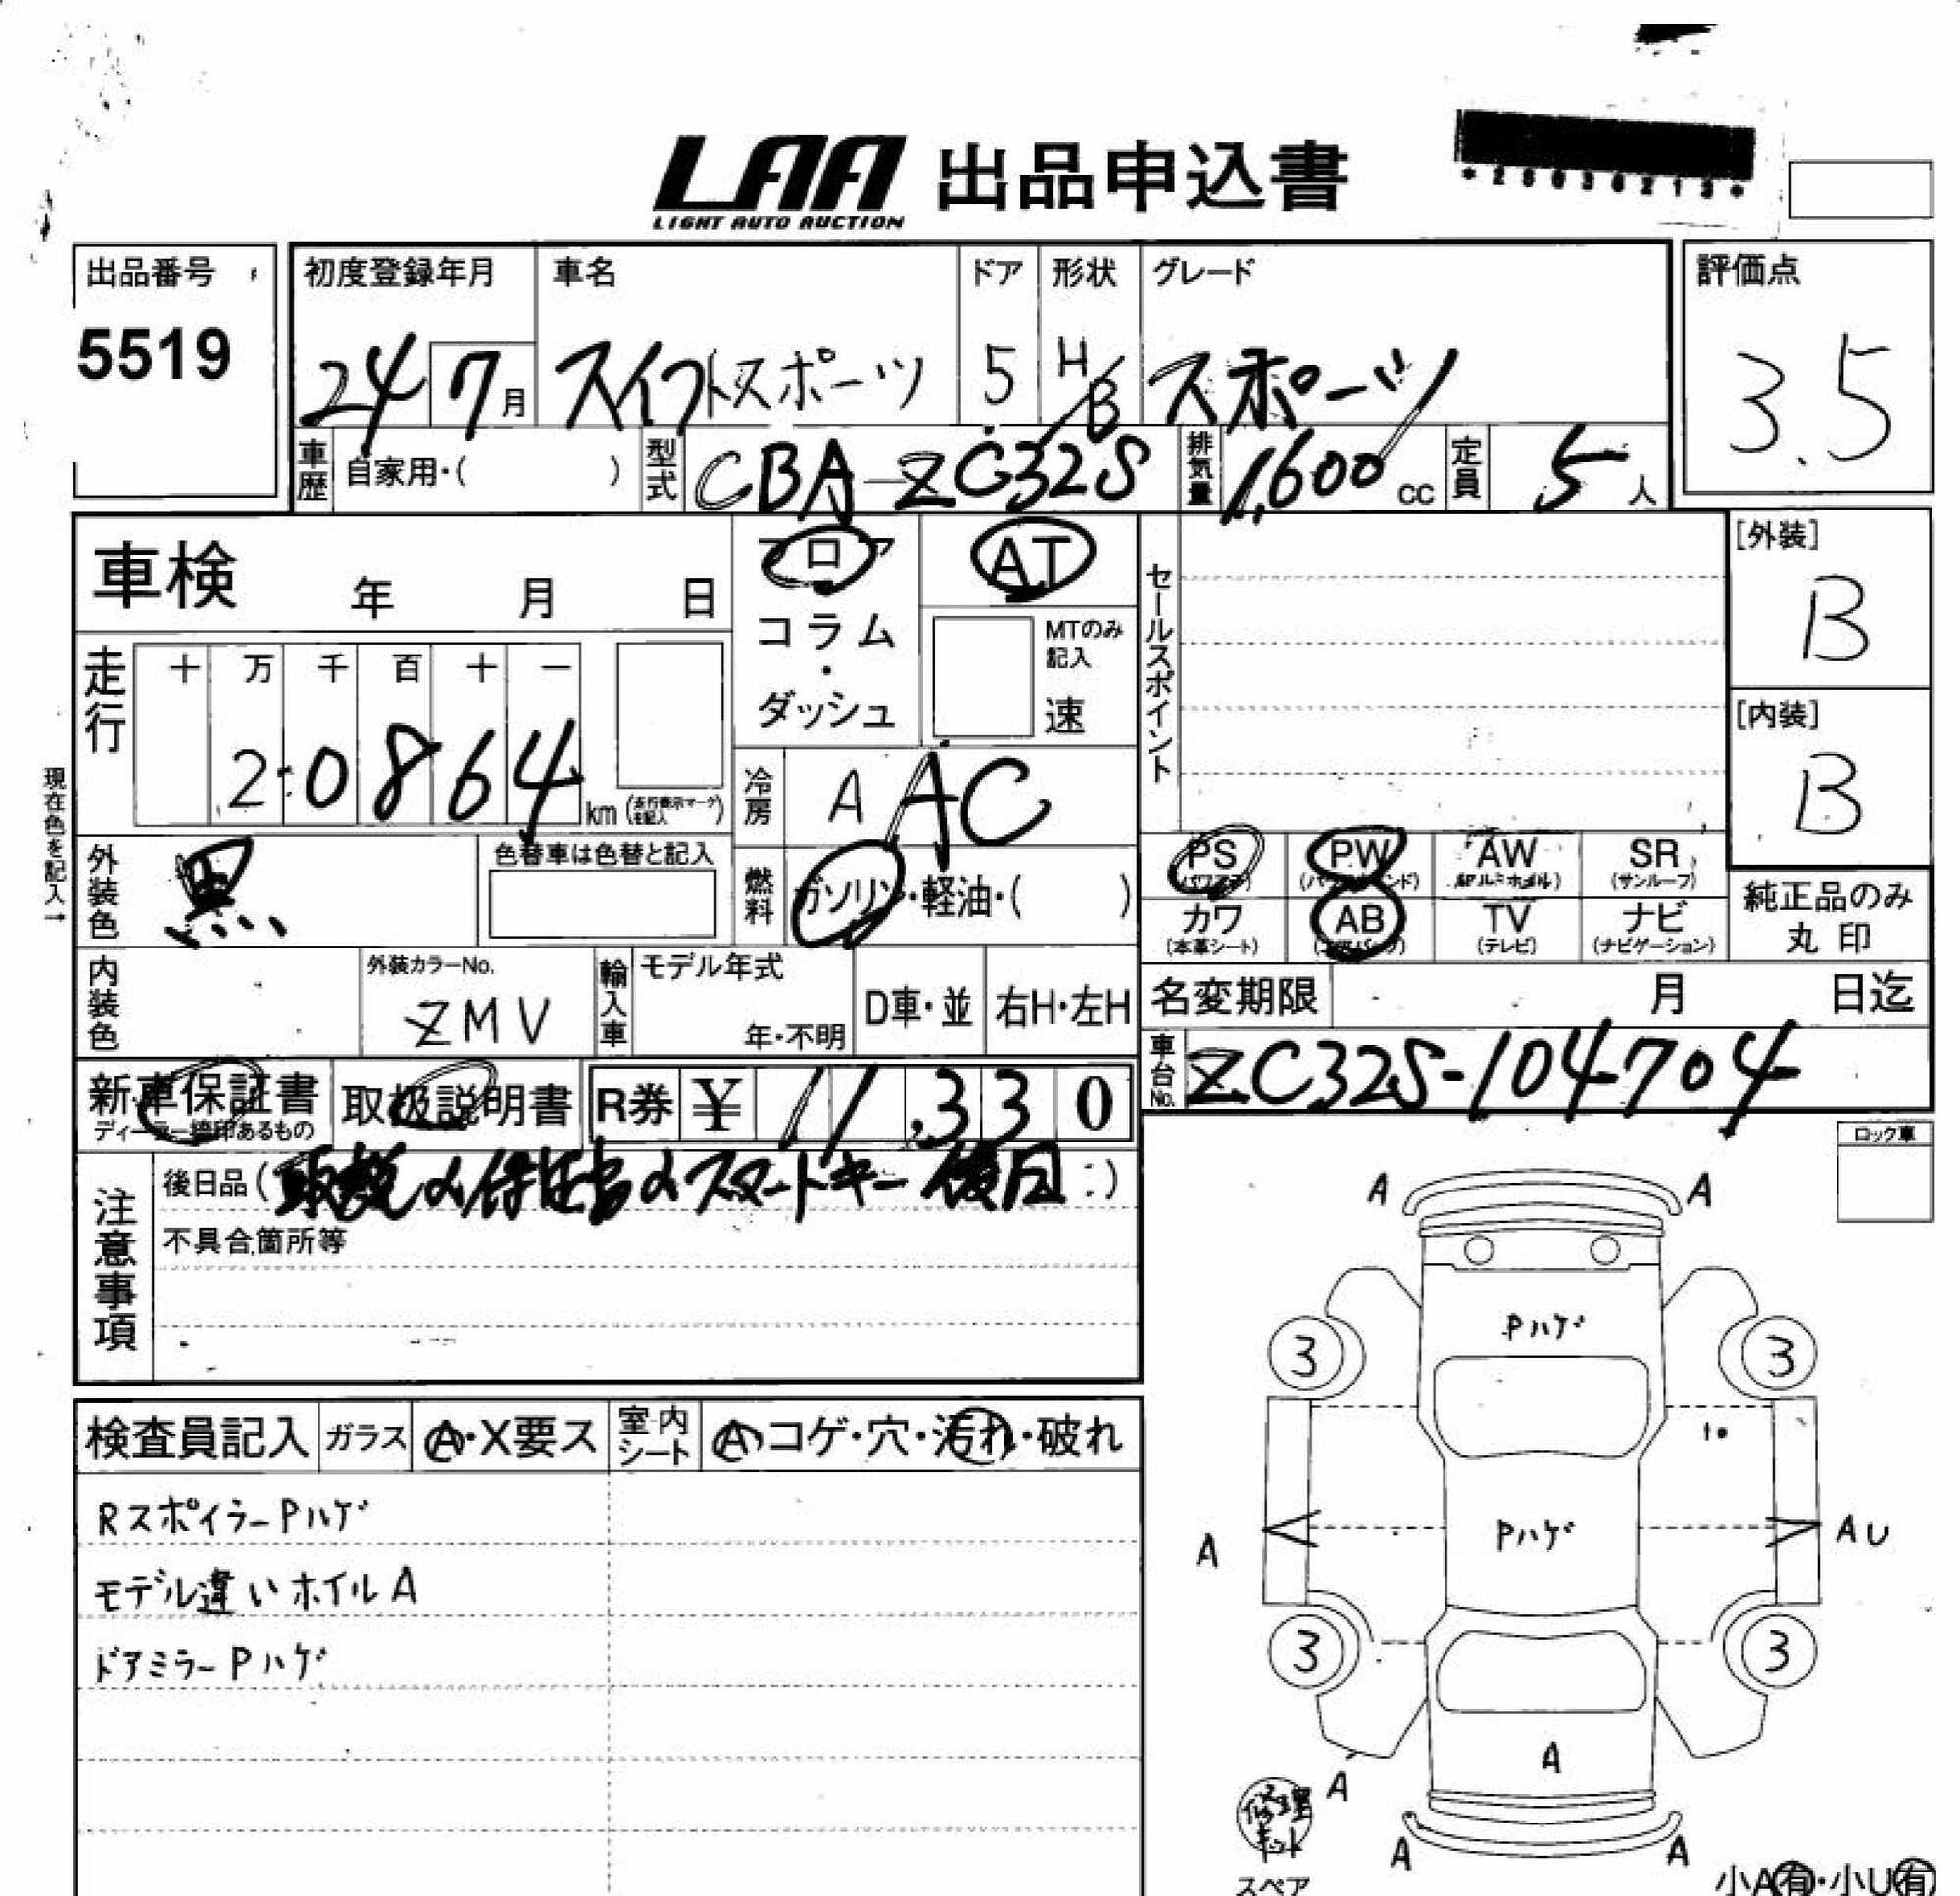 LAA 出品申込書
LIGHT AUTO AUCTION
*25030213*
出品番号
5519
初度登録年月
24 7月
車名
スイフトスポーツ
ドア
5
形状
H/B
グレード
スポーツ
評価点
3.5
車歴 自家用・( )
型式 CBA-ZC32S
排気量 1,600 cc
定員 5 人
車検 年 月 日
フロア
コラム・ダッシュ
AT
MTのみ記入
速
セールスポイント
[外装]
B
[内装]
B
走行
十 万 千 百 十 一
2 0 8 6 4 km (走行表示マークを記入)
冷房 A AC
現在色を記入→
外装色 黒
色替車は色替と記入
燃料 ガソリン・軽油・( )
PS (パワステ) PW (パワーウインド) AW (アルミホイル) SR (サンルーフ)
カワ (本革シート) AB (エアバッグ) TV (テレビ) ナビ (ナビゲーション)
純正品のみ丸印
内装色
外装カラーNo.
ZMV
輸入車 モデル年式
年・不明
D車・並 右H・左H
名変期限 月 日迄
車台No. ZC32S-104704
新車保証書
ディーラー捺印あるもの
取扱説明書
R券 ¥ 11,330
注意事項
後日品( 取説 保証書 スマートキー 後日 )
不具合箇所等
ロック車
検査員記入 ガラス A・X要ス 室内シート A・コゲ・穴・汚れ・破れ
RスポイラーPハゲ
モデル違いホイルA
ドアミラーPハゲ
A A
Pハゲ
3 3
Pハゲ
A AU
3 3
A
A
修理キット
スペア
A A
小A有・小U有